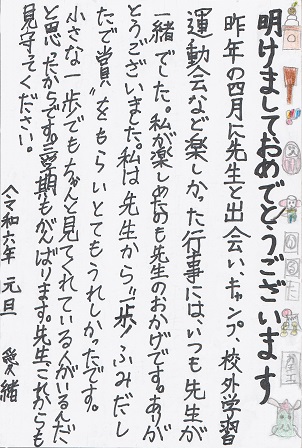 明けましておめでとうございます
昨年の四月に先生と出会い、キャンプ、校外学習
運動会など楽しかった行事には、いつも先生が
一緒でした。私が楽しめたのも先生のおかげです。ありが
とうございました。私は先生から〝一歩ふみだし
たで賞〟をもらいとてもうれしかったです。
小さな一歩でもちゃんと見てくれている人がいるんだ
と思ったからです。三学期もがんばります。先生これからも
見守ってください。
令和六年 元旦 愛緒